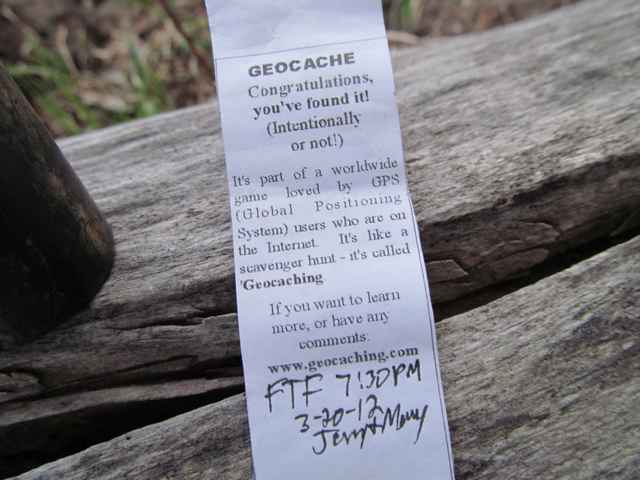 GEOCACHE
Congratulations,
you've found it!
(Intentionally
or not!)
It's part of a worldwide
game loved by GPS
(Global Positioning
System) users who are on
the Internet. It's like a
scavenger hunt - it's called
'Geocaching.
If you want to learn
more, or have any
comments:
www.geocaching.com
FTF 7:30PM
3-20-12
Jerry &